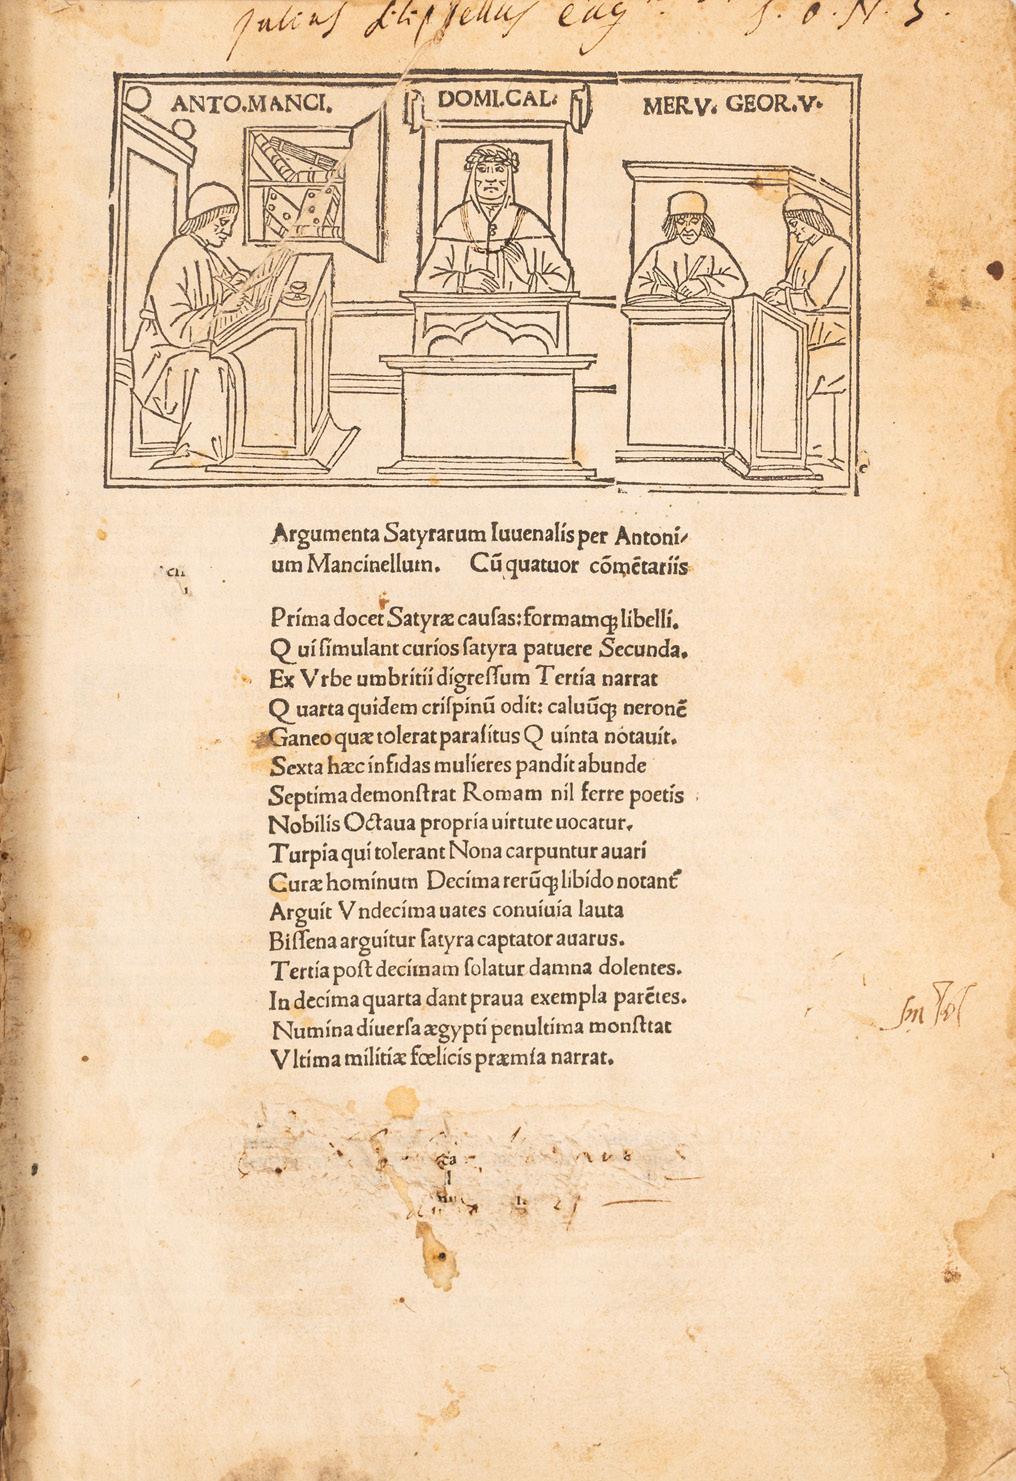 ANTO.MANCI.
DOMI.CAL.
MERV. GEOR.V.
Argumenta Satyrarum Iuuenalis per Antoni/
um Mancinellum. Cũ quatuor cõmẽtariis
Prima docet Satyræ causas:formamqꝫ libelli.
Qui simulant curios satyra patuere Secunda.
Ex Vrbe umbritii digressum Tertia narrat
Quarta quidem crispinũ odit: caluũqꝫ neronẽ
Ganeo quæ tolerat parasitus Quinta notauit.
Sexta hæc infidas mulieres pandit abunde
Septima demonstrat Romam nil ferre poetis
Nobilis Octaua propria uirtute uocatur.
Turpia qui tolerant Nona carpuntur auari
Curæ hominum Decima rerũqꝫ libido notant᷒
Arguit Vndecima uates conuiuia lauta
Bissena arguitur satyra captator auarus.
Tertia post decimam solatur damna dolentes.
In decima quarta dant praua exempla parẽtes.
Numina diuersa ægypti penultima monstrat
Vltima militiæ fœlicis præmia narrat.